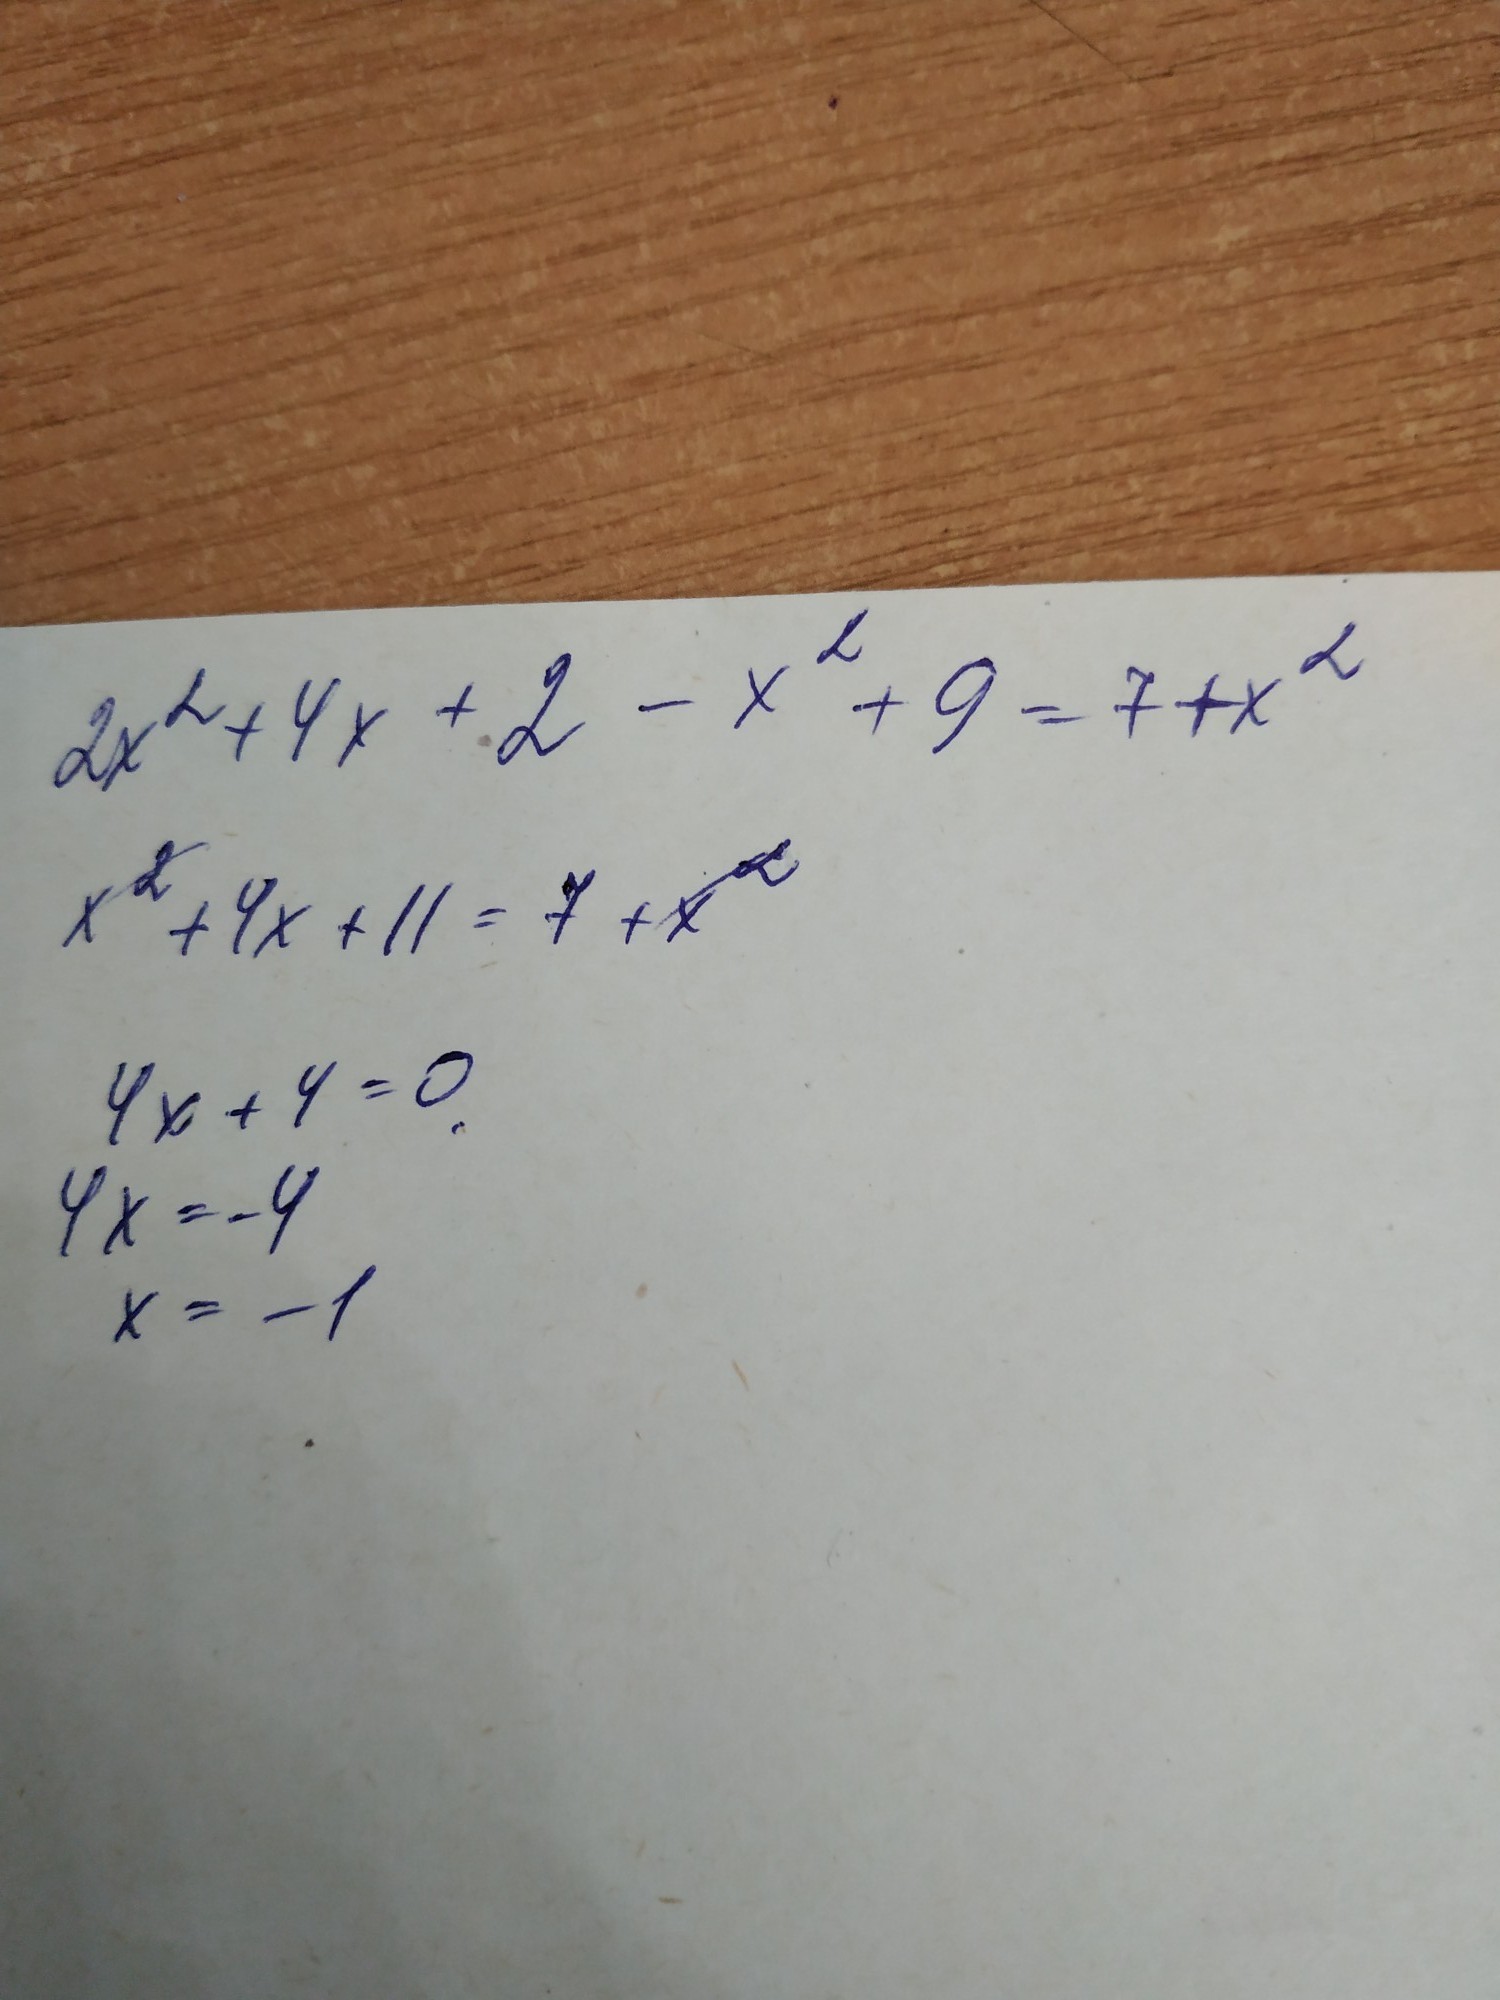 2x² + 4x + 2 - x² + 9 = 7 + x²
x² + 4x + 11 = 7 + x²
4x + 4 = 0.
4x = -4
x = -1